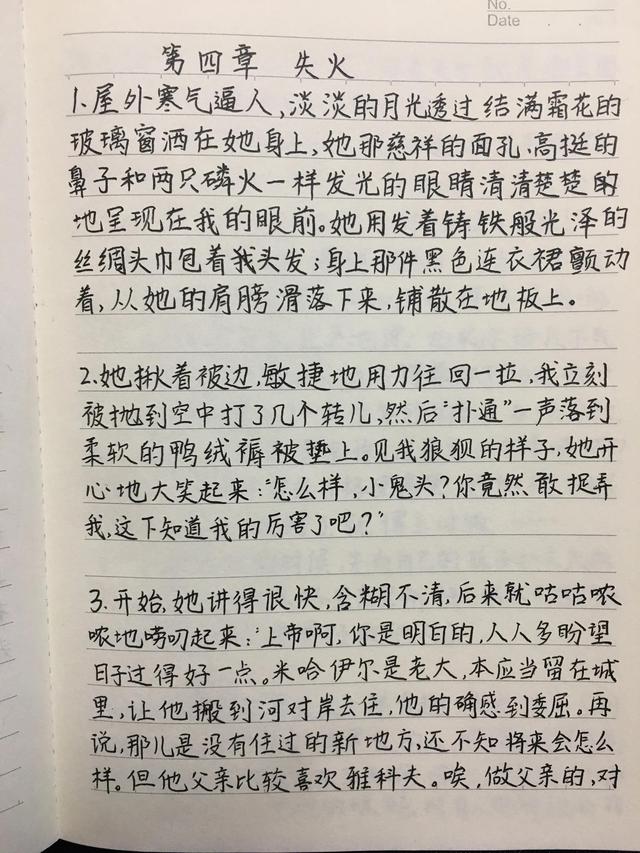 No.
Date . .
第四章 失火
1、屋外寒气逼人,淡淡的月光透过结满霜花的
玻璃窗洒在她身上,她那慈祥的面孔、高挺的
鼻子和两只磷火一样发光的眼睛清清楚楚的
地呈现在我的眼前。她用发着铸铁般光泽的
丝绸头巾包着我头发;身上那件黑色连衣裙颤动
着,从她的肩膀滑落下来,铺散在地板上。
2.她揪着被边,敏捷地用力往回一拉,我立刻
被抛到空中打了几个转儿,然后“扑通”一声落到
柔软的鸭绒褥被垫上。见我狼狈的样子,她开
心地大笑起来:“怎么样,小鬼头?你竟然敢捉弄
我,这下知道我的厉害了吧?”
3.开始,她讲得很快,含糊不清,后来就咕咕哝
哝地唠叨起来:“上帝啊,你是明白的,人人多盼望
日子过得好一点。米哈伊尔是老大,本应当留在城
里,让他搬到河对岸去住,他的确感到委屈。再
说,那儿是没有住过的新地方,还不知将来会怎么
样。但他父亲比较喜欢雅科夫。唉,做父亲的,对